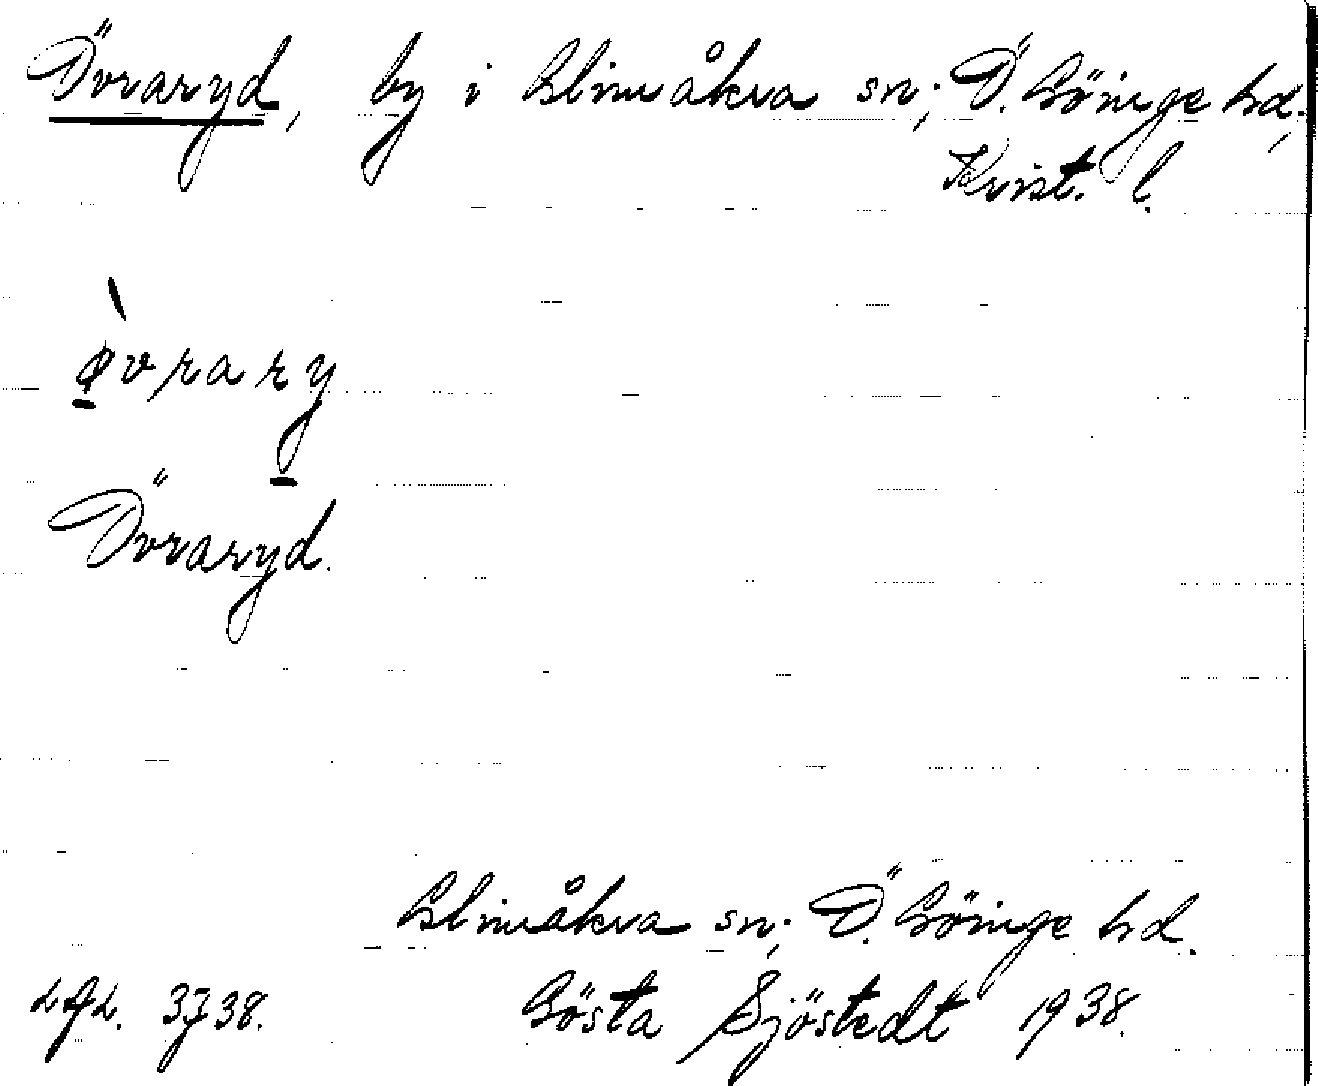 Övraryd, by i Glimåkra sn; Ö. Göinge hd.,
Krist. l.
øvrary
Övraryd.
Glimåkra sn; Ö. Göinge hd.
3738. Gösta Sjöstedt 1938.